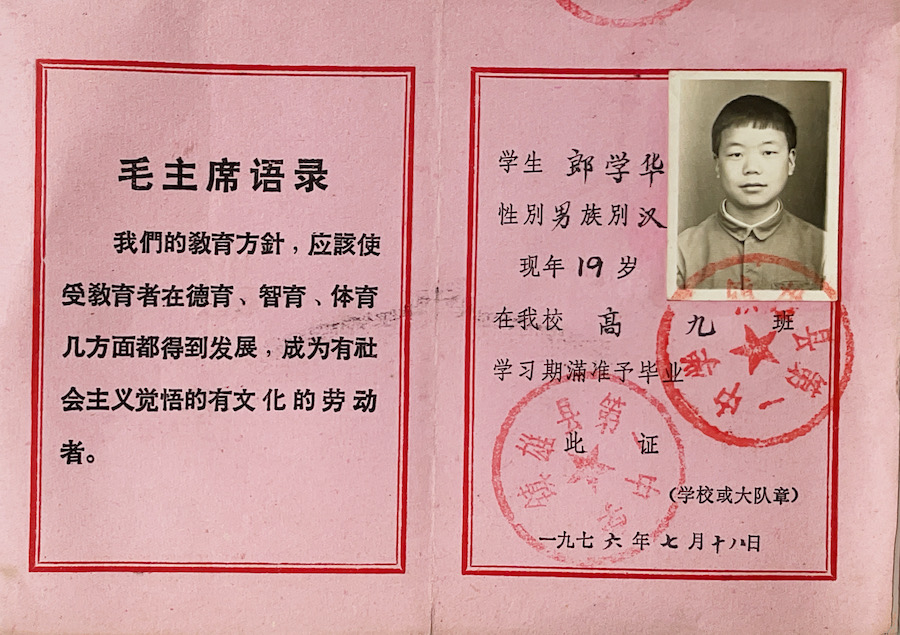 毛主席语录
我們的教育方針，应該使
受教育者在德育、智育、体育
几方面都得到发展，成为有社
会主义觉悟的有文化的劳动
者。
学生 郎学华
性別男族別汉
现年19岁
在我校 高 九 班
学习期滿准予毕业
此 证
（学校或大队章）
一九七六年七月十八日
镇雄县第一中学